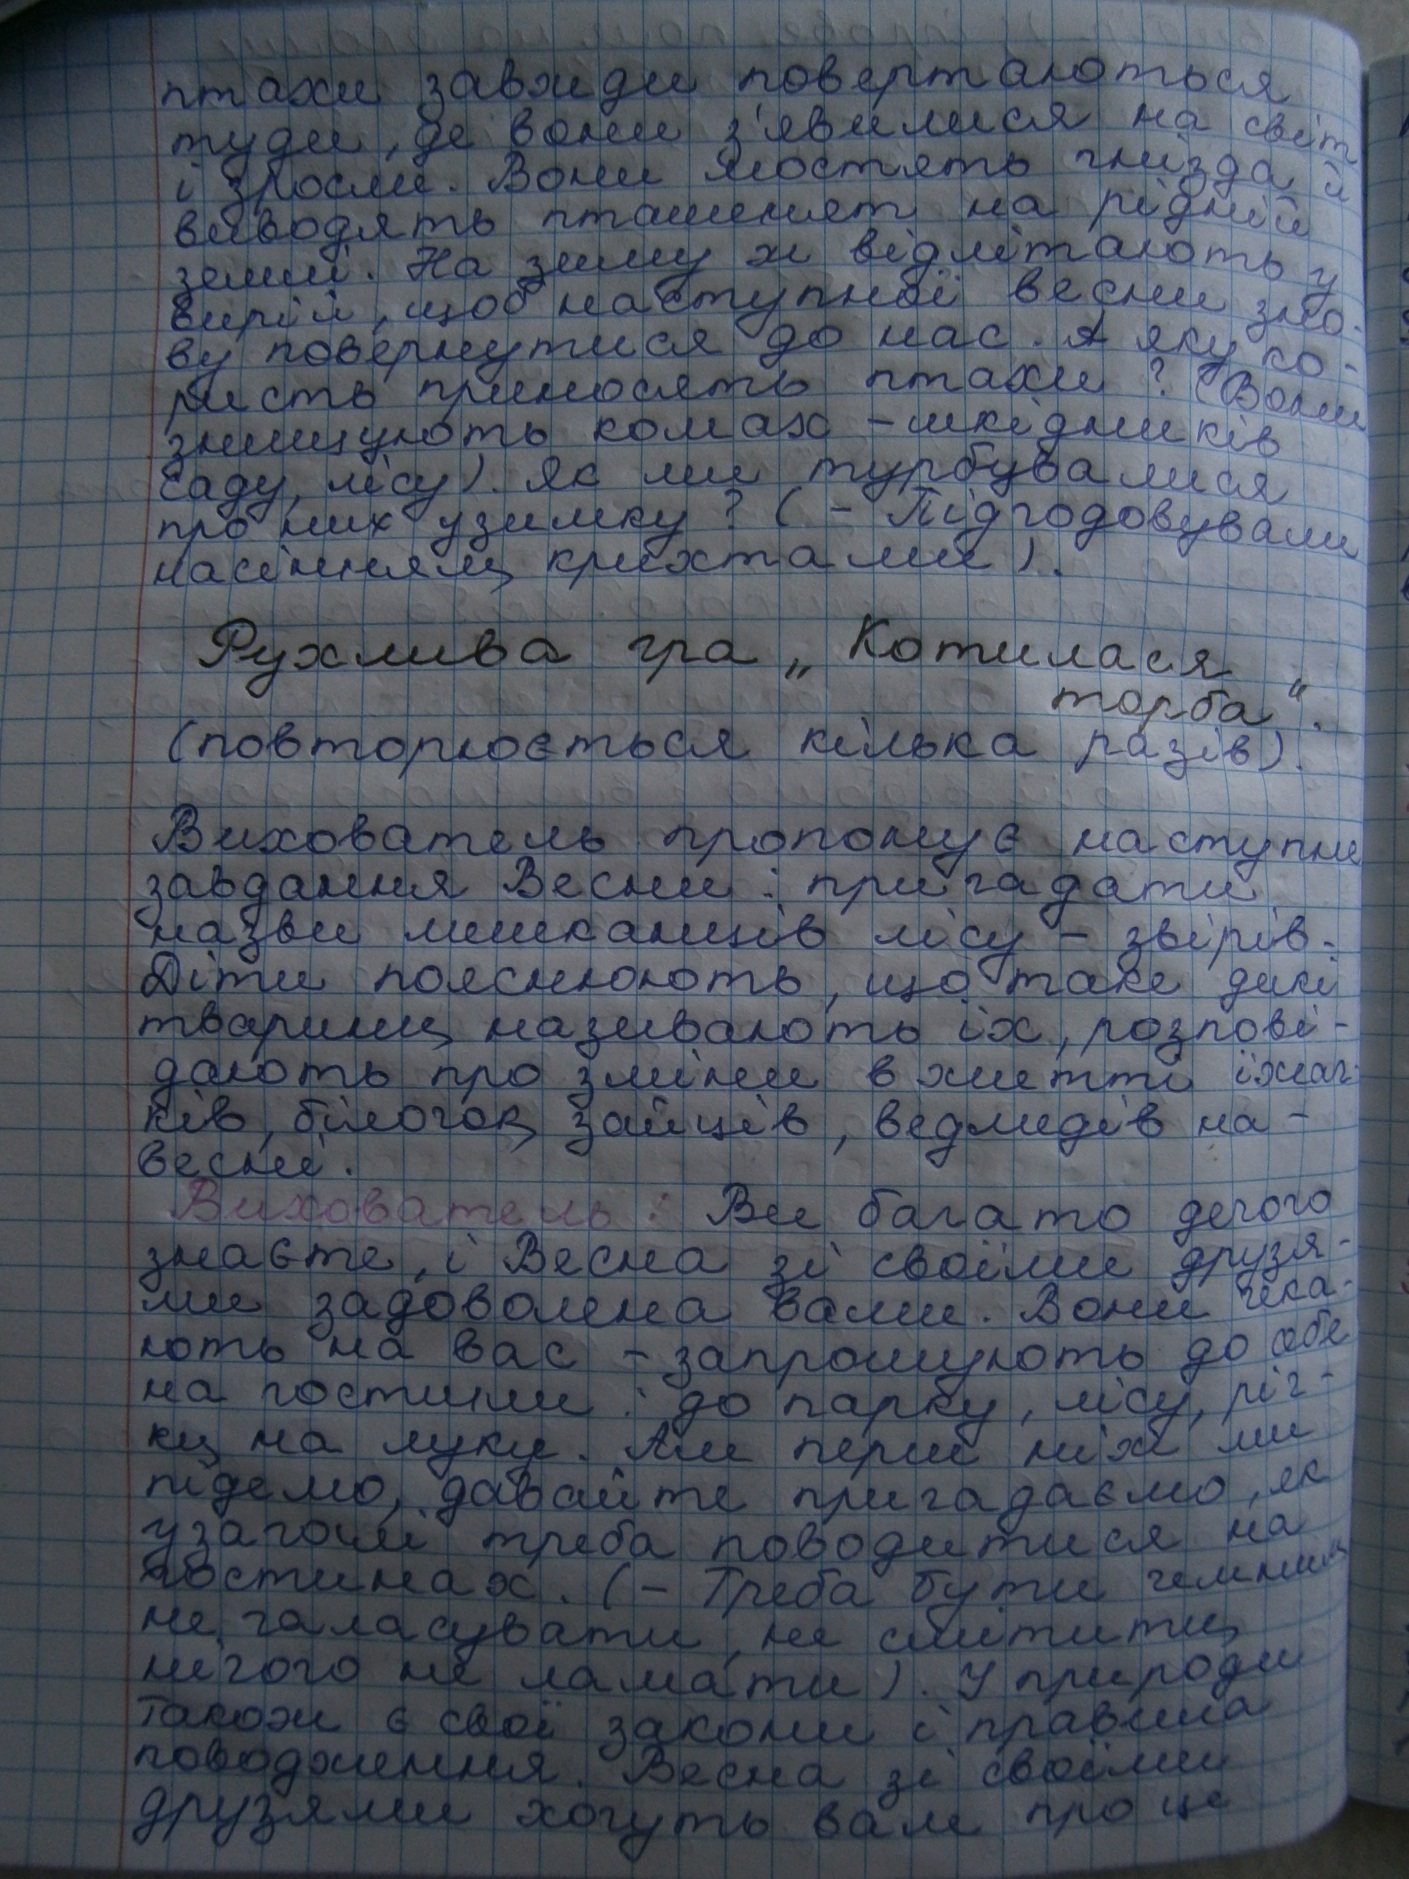 птахи завжди повертаються
туди, де вони з'явилися на світ
і зросли. Вони мостять гнізда й
виводять пташенят на рідній
землі. На зиму ж відлітають у
вирій, щоб наступної весни зно-
ву повернутися до нас. А яку ко-
ристь приносять птахи? (Вони
знищують комах - шкідників
саду, лісу). Як ми турбувалися
про них узимку? (- Підгодовували
насінням, крихтами).
Рухлива гра „Котилася
торба".
(повторюється кілька разів).
Вихователь пропонує наступне
завдання Весни: пригадати
назви мешканців лісу - звірів.
Діти пояснюють, що таке дикі
тварини, називають їх, розпові-
дають про зміни в житті їжач-
ків, білочок, зайців, ведмедів на-
весні.
Вихователь: Ви багато дечого
знаєте, і Весна зі своїми друзя-
ми задоволена вами. Вони чека-
ють на вас - запрошують до себе
на гостини: до парку, лісу, річ-
ки, на луки. Але перш ніж ми
підемо, давайте пригадаємо, як
узагалі треба поводитися на
гостинах. (- Треба бути чемним,
не галасувати, не смітити,
нічого не ламати). У природи
також є свої закони і правила
поводження. Весна зі своїми
друзями хочуть вам про це